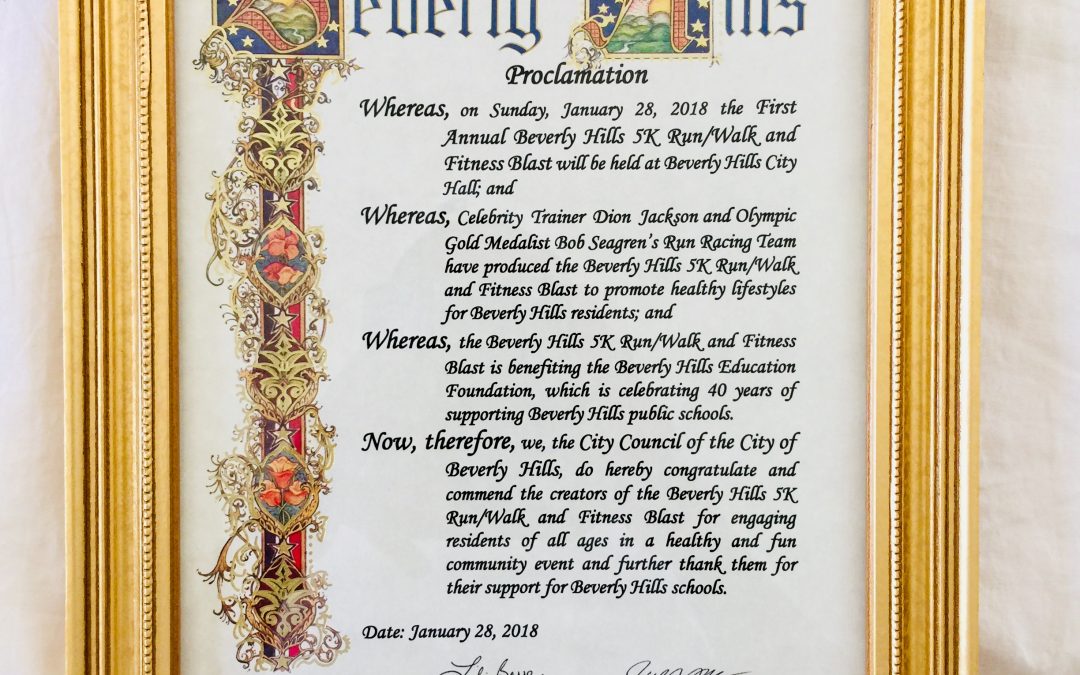 Beverly Hills
Proclamation
Whereas, on Sunday, January 28, 2018 the First
Annual Beverly Hills 5K Run/Walk and
Fitness Blast will be held at Beverly Hills City
Hall; and
Whereas, Celebrity Trainer Dion Jackson and Olympic
Gold Medalist Bob Seagren's Run Racing Team
have produced the Beverly Hills 5K Run/Walk
and Fitness Blast to promote healthy lifestyles
for Beverly Hills residents; and
Whereas, the Beverly Hills 5K Run/Walk and Fitness
Blast is benefiting the Beverly Hills Education
Foundation, which is celebrating 40 years of
supporting Beverly Hills public schools.
Now, therefore, we, the City Council of the City of
Beverly Hills, do hereby congratulate and
commend the creators of the Beverly Hills 5K
Run/Walk and Fitness Blast for engaging
residents of all ages in a healthy and fun
community event and further thank them for
their support for Beverly Hills schools.
Date: January 28, 2018